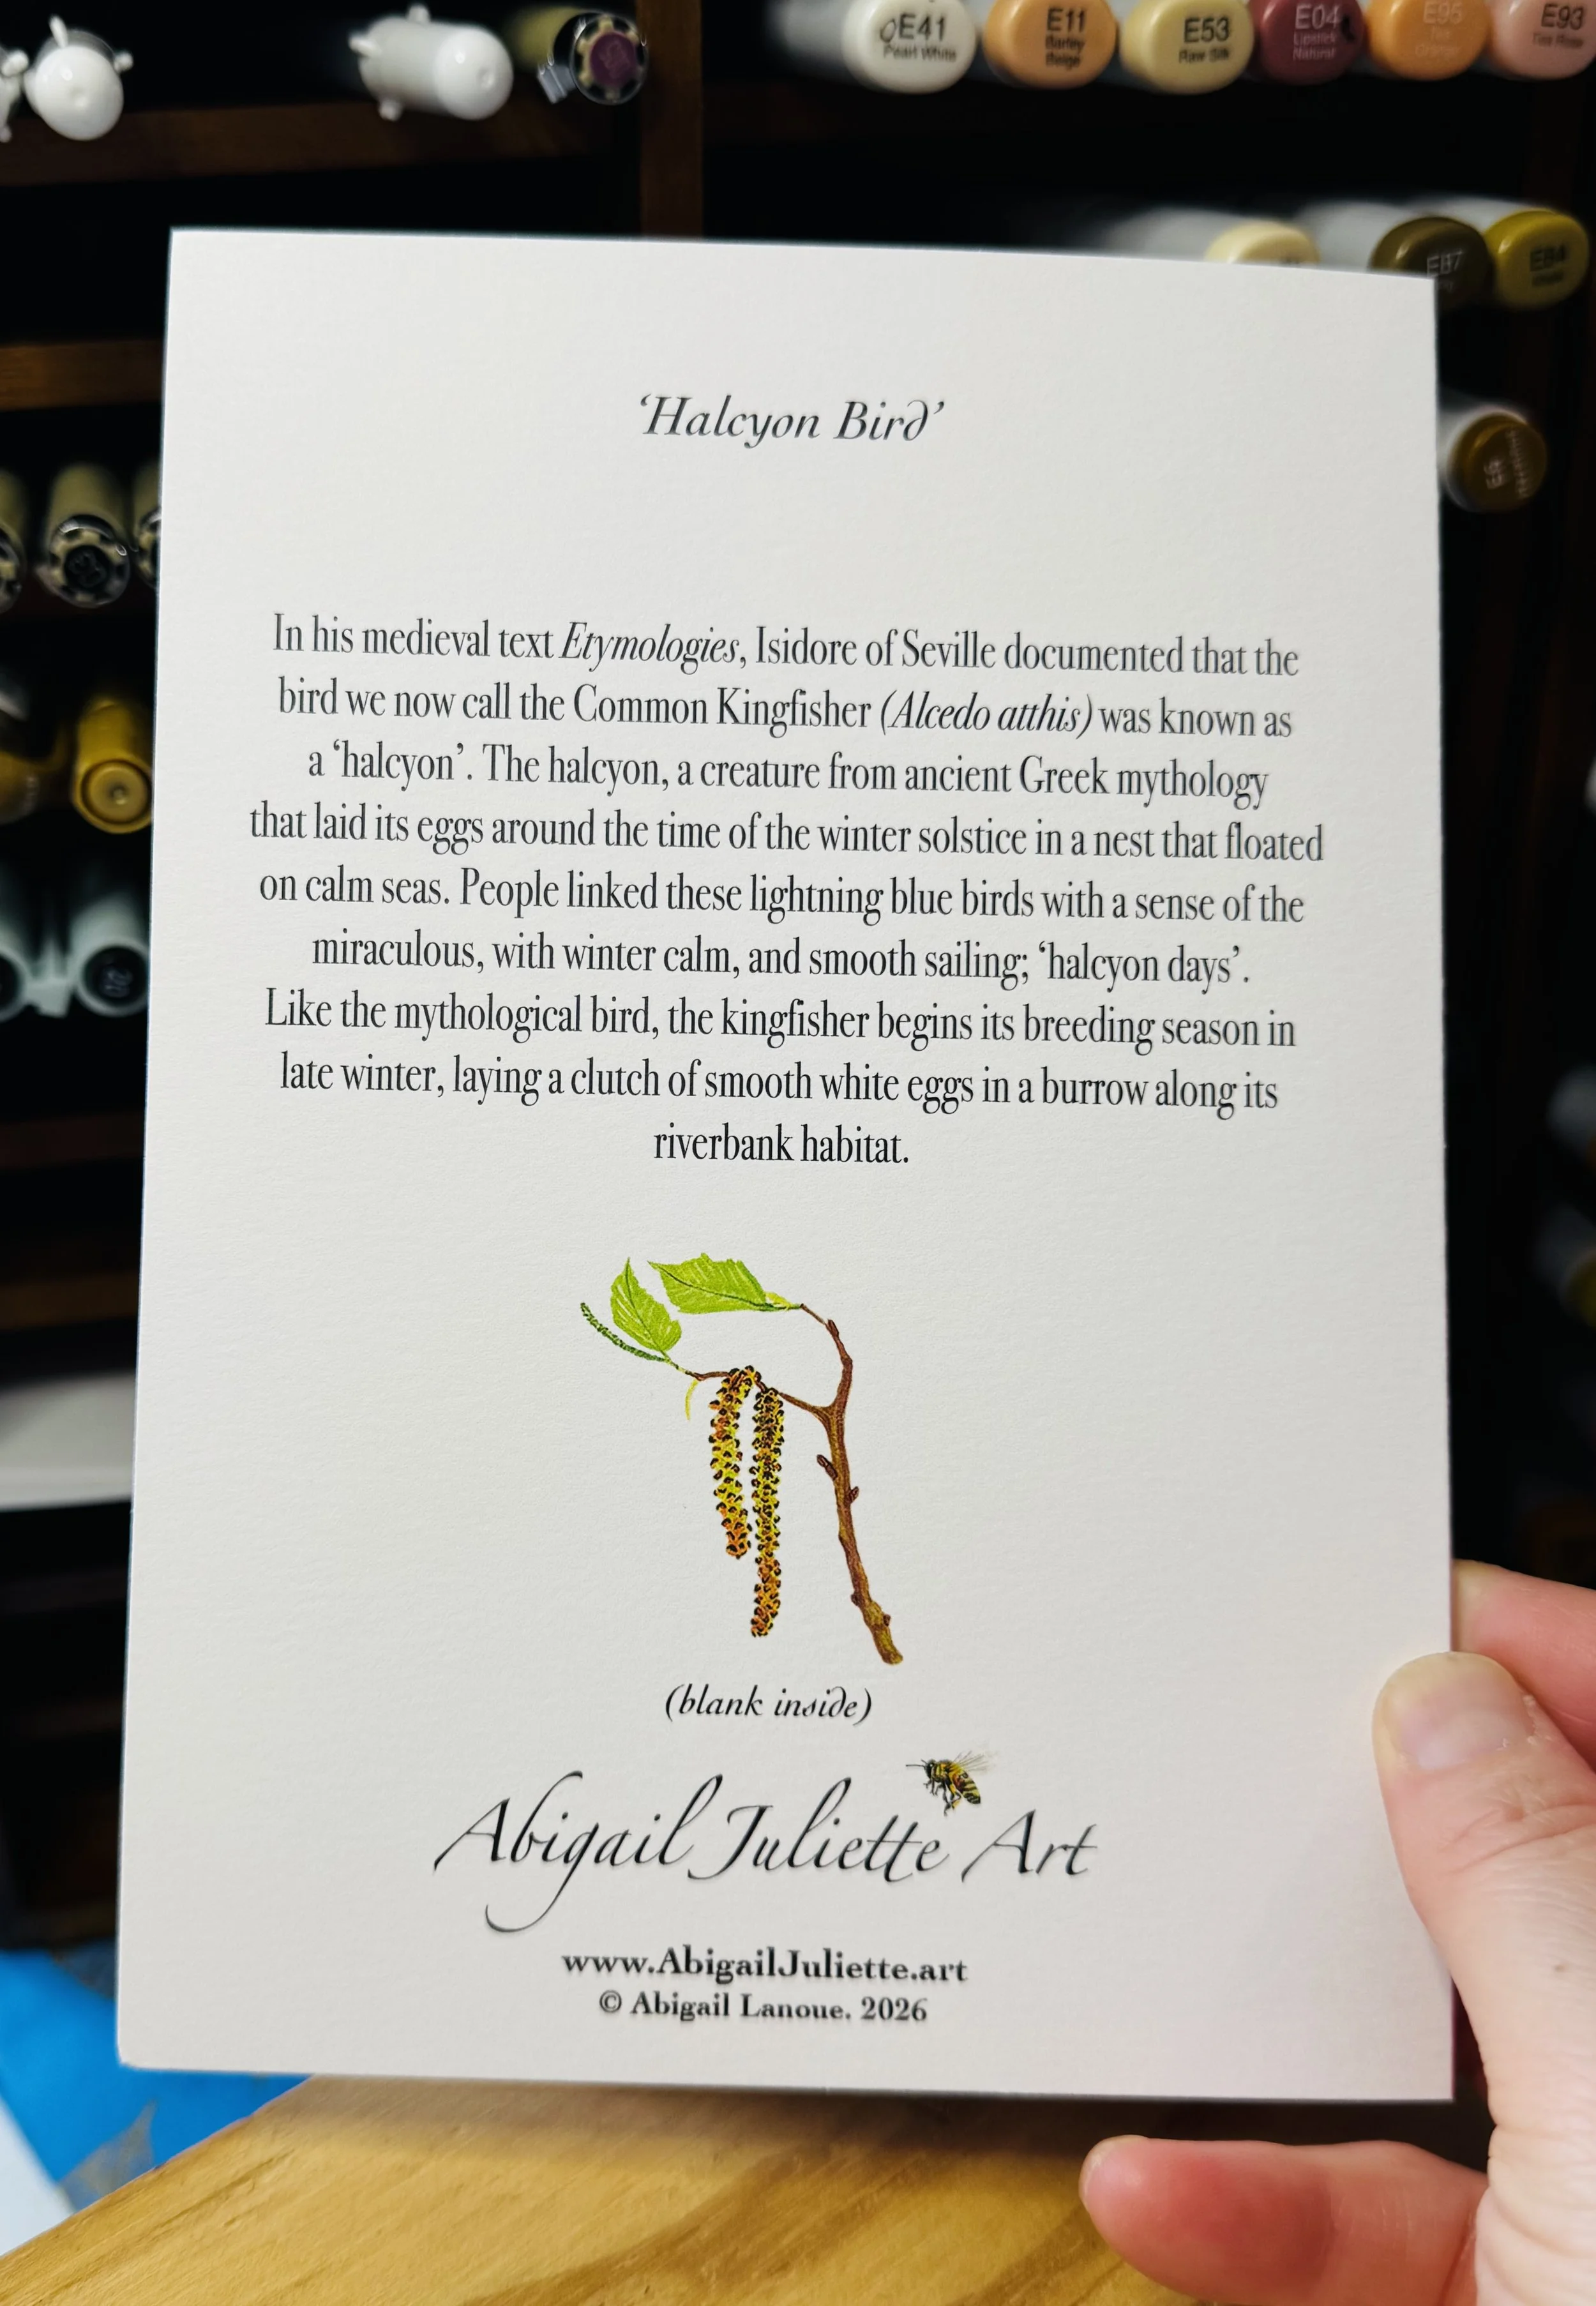 E41
Pearl White
E11
Barley
Beige
E53
Raw Silk
E04
Lipstick
Natural
E95
E93
Tea Rose
E87
E84
‘Halcyon Bird’
In his medieval text Etymologies, Isidore of Seville documented that the
bird we now call the Common Kingfisher (Alcedo atthis) was known as
a ‘halcyon’. The halcyon, a creature from ancient Greek mythology
that laid its eggs around the time of the winter solstice in a nest that floated
on calm seas. People linked these lightning blue birds with a sense of the
miraculous, with winter calm, and smooth sailing; ‘halcyon days’.
Like the mythological bird, the kingfisher begins its breeding season in
late winter, laying a clutch of smooth white eggs in a burrow along its
riverbank habitat.
(blank inside)
Abigail Juliette Art
www.AbigailJuliette.art
© Abigail Lanoue. 2026